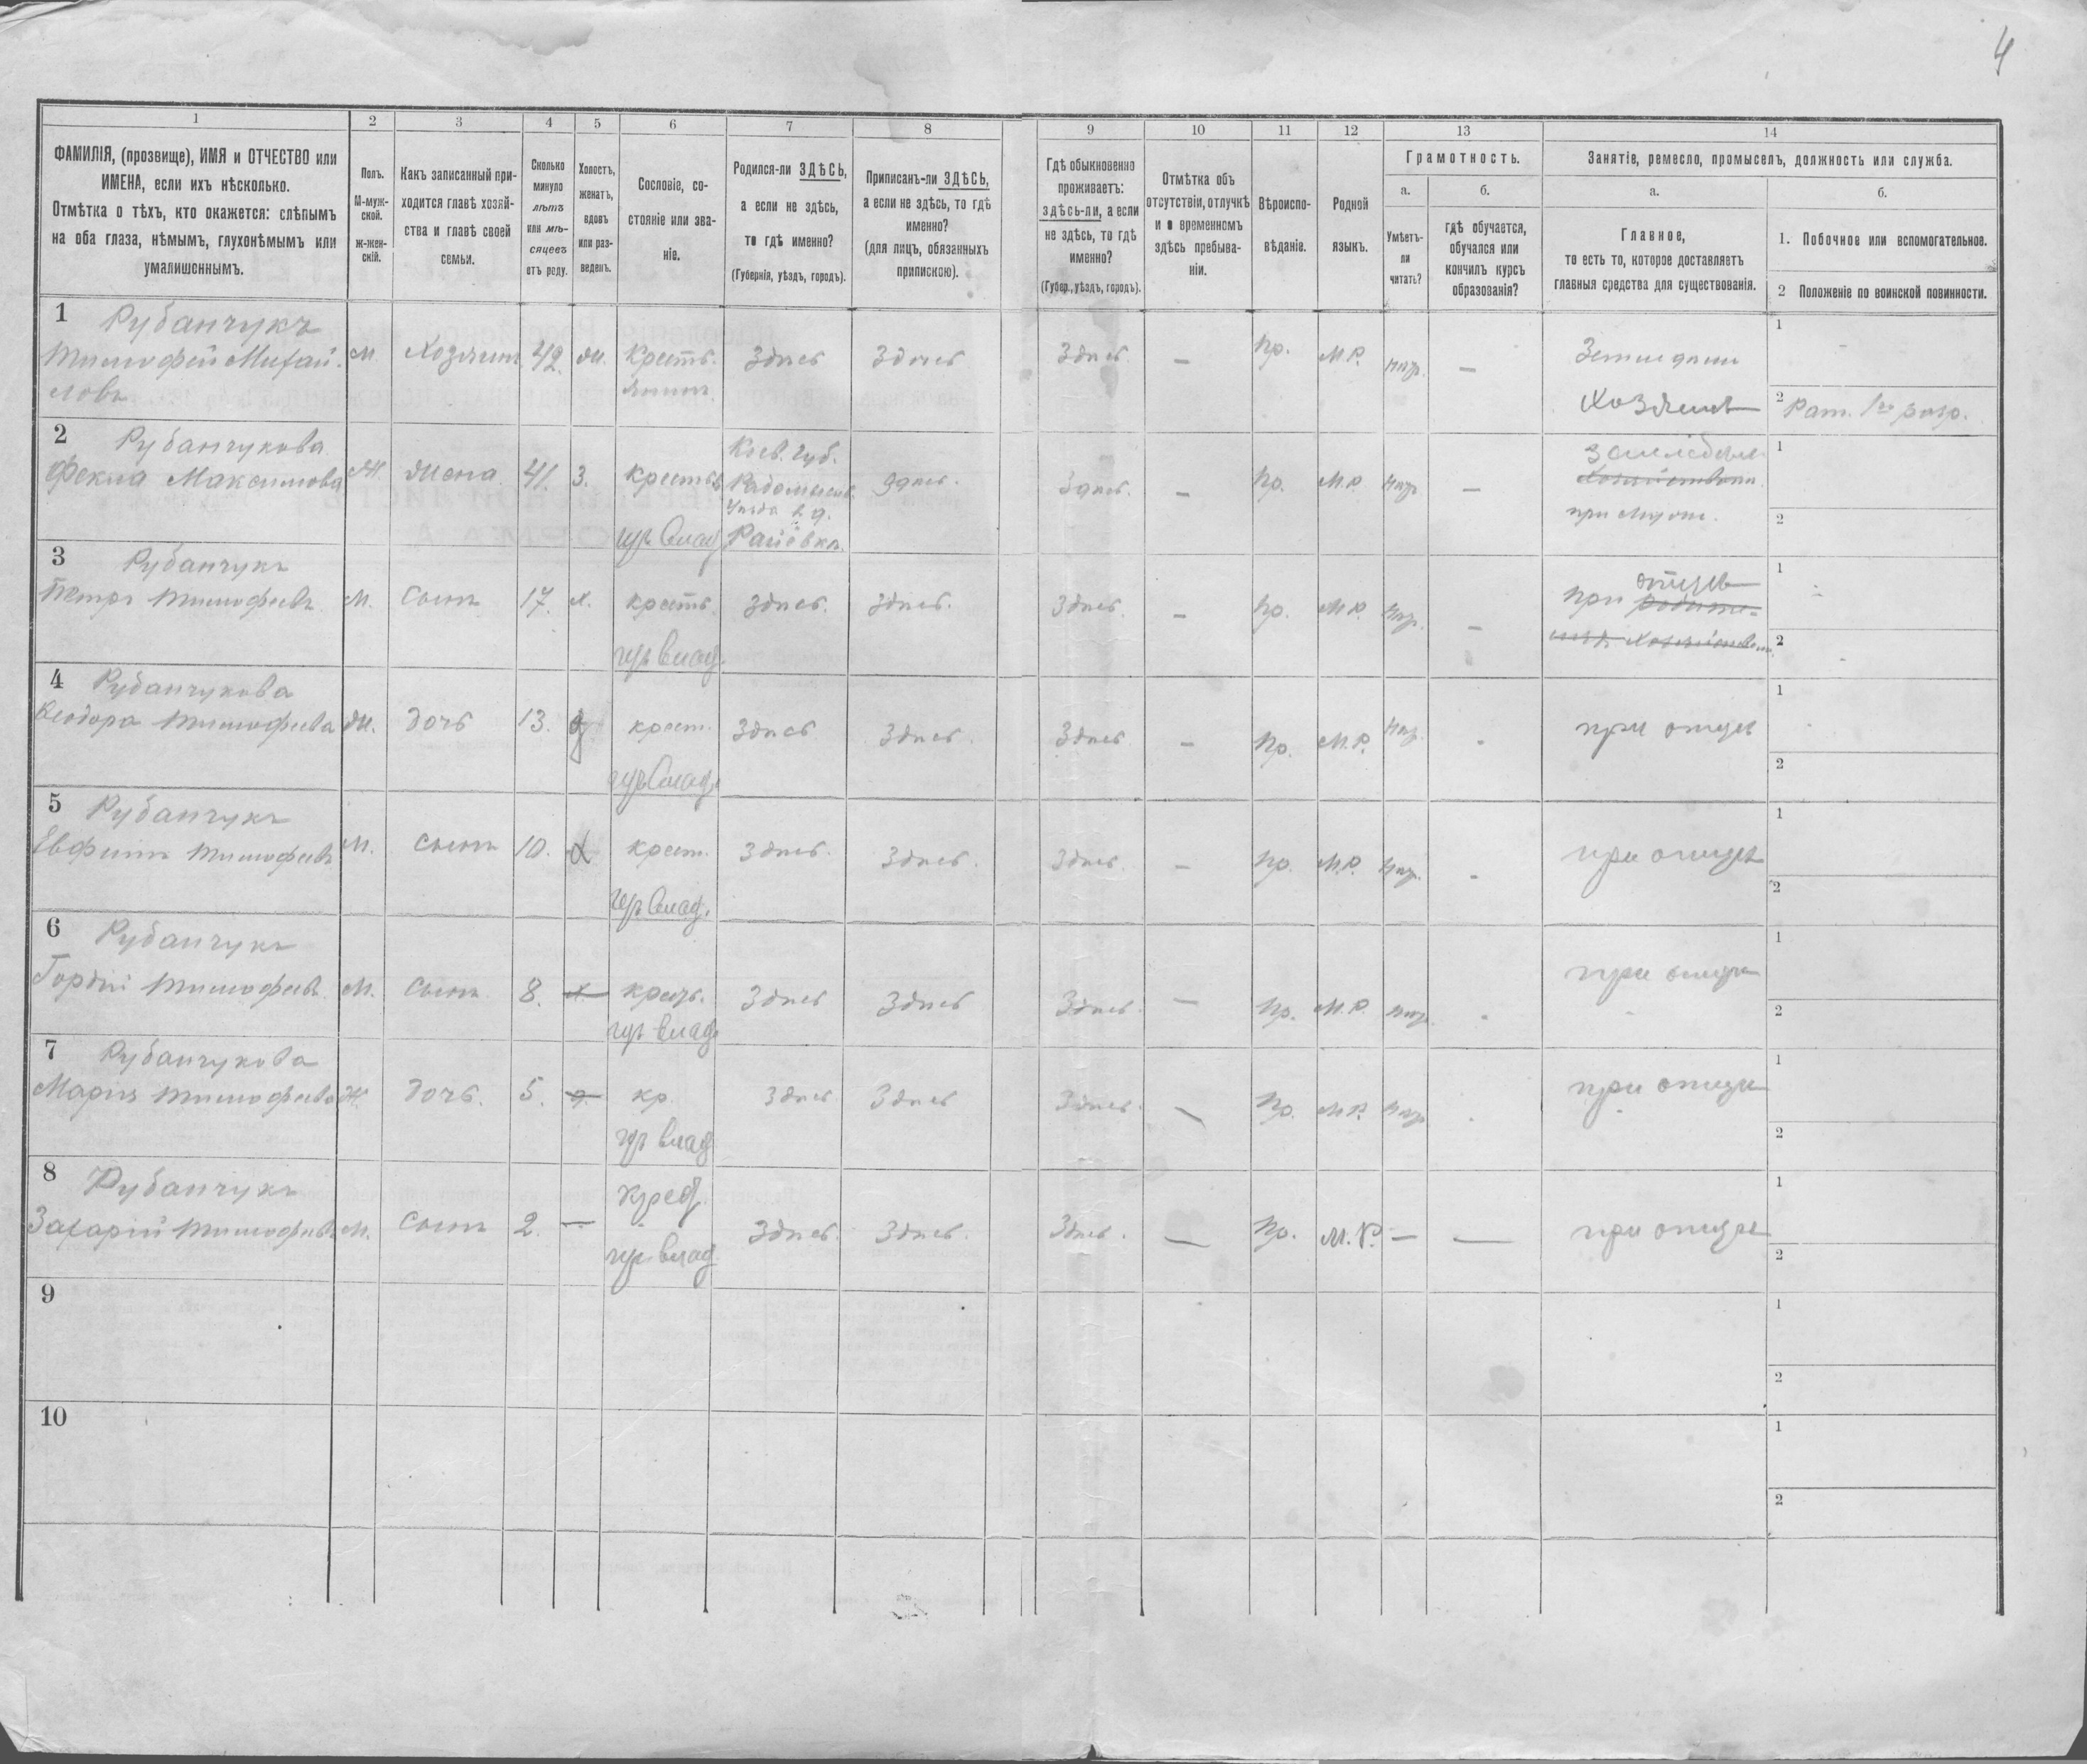 4
1
2
3
4
5
6
7
8
9
10
11
12
13
14
ФАМИЛІЯ, (прозвище), ИМЯ и ОТЧЕСТВО или
ИМЕНА, если ихъ нѣсколько.
Отмѣтка о тѣхъ, кто окажется: слѣпымъ
на оба глаза, нѣмымъ, глухонѣмымъ или
умалишеннымъ.
Полъ.
М-муж-
ской.
ж-жен-
скій.
Какъ записанный при-
ходится главѣ хозяй-
ства и главѣ своей
семьи.
Сколько
минуло
лѣтъ
или мѣ-
сяцевъ
отъ роду.
Холостъ,
женатъ,
вдовъ
или раз-
веденъ.
Сословіе, со-
стояніе или зва-
ніе.
Родился-ли ЗДѢСЬ,
а если не здѣсь,
то гдѣ именно?
(Губернія, уѣздъ, городъ).
Приписанъ-ли ЗДѢСЬ,
а если не здѣсь, то гдѣ
именно?
(для лицъ, обязанныхъ
припискою).
Гдѣ обыкновенно
проживаетъ:
здѣсь-ли, а если
не здѣсь, то гдѣ
именно?
(Губер., уѣздъ, городъ).
Отмѣтка объ
отсутствіи, отлучкѣ
и о временномъ
здѣсь пребыва-
ніи.
Вѣроиспо-
вѣданіе.
Родной
языкъ.
Грамотность.
а.
Умѣетъ-
ли
читать?
б.
гдѣ обучается,
обучался или
кончилъ курсъ
образованія?
Занятіе, ремесло, промыселъ, должность или служба.
а.
Главное,
то есть то, которое доставляетъ
главныя средства для существованія.
б.
1. Побочное или вспомогательное.
2 Положеніе по воинской повинности.
1 Рубанчукъ
Тимофей Михай-
ловъ
М.
Хозяинъ
42.
Ж.
Крестья-
нинъ
Здѣсь
Здѣсь
Здѣсь
—
Пр.
М.Р.
—
Хозяинъ
1
2 Рат. 1го разр.
2 Рубанчукова
Фекла Максимова
Ж.
Жена
41.
З.
Крестья
Кіев. Губ.
Радомысль.
Уѣзда
Здѣсь.
Здѣсь.
—
Пр.
М.Р.
—
при мужѣ.
1
2
3 Рубанчукъ
Петръ Тимофеевъ
М.
Сынъ
17.
Х.
крестъ.
Здѣсь.
Здѣсь.
Здѣсь
—
Пр.
М.Р.
—
при отцѣ
1
2
4 Рубанчукова
Феодора Тимофеева
Ж.
Дочь
13.
крест.
Здѣсь
Здѣсь.
Здѣсь
—
Пр.
М.Р.
при отцѣ
1
2
5 Рубанчукъ
Евфимъ Тимофеевъ
М.
Сынъ
10.
Х
крест.
Здѣсь.
Здѣсь.
Здѣсь.
—
Пр.
М.Р.
при отцѣ
1
2
6 Рубанчукъ
Гордій Тимофеевъ
М.
Сынъ
8.
Х.
крест.
Здѣсь
Здѣсь
Здѣсь.
—
Пр.
М.Р.
при отцѣ
1
2
7 Рубанчукова
Марія Тимофеева
Ж.
Дочь.
5.
кр.
Здѣсь
Здѣсь
Здѣсь.
—
Пр.
М.Р.
при отцѣ
1
2
8 Рубанчукъ
Захарій Тимофеевъ
М.
Сынъ
2.
—
Здѣсь.
Здѣсь.
Здѣсь.
—
Пр.
М.Р.
—
—
при отцѣ
1
2
9
1
2
10
1
2